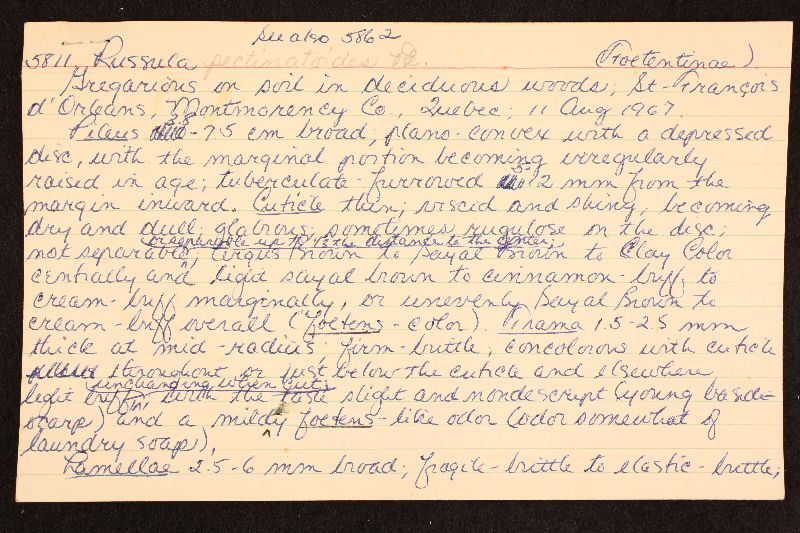 See also 5862
5811. Russula pectinatoides Pk. (Foetentinae).
Gregarious on soil in deciduous woods; St-François
d'Orléans, Montmorency Co., Quebec; 11 Aug 1967
Pileus -7.5 cm broad; plano-convex with a depressed
disc, with the marginal portion becoming irregularly
raised in age; tuberculate-furrowed 5-12 mm from the
margin inward. Cuticle thin; viscid and shiny, becoming
dry and dull; glabrous; sometimes rugulose on the disc;
or separable up to 1/2 the distance to the center;
not separable, Argus Brown to Sayal Brown to Clay Color
centrally and light sayal brown to cinnamon-buff to
cream-buff marginally, or unevenly Sayal Brown to
cream-buff overall (foetens-color). Trama 1.5-2.5 mm
thick at mid-radius, firm-brittle; concolorous with cuticle
throughout or just below the cuticle and elsewhere
unchanging when cut;
light buff; with the taste slight and nondescript (young basidi=
ocarp) and a mildy foetens-like odor (odor somewhat of
laundry soap).
Lamellae 2.5-6 mm broad; fragile-brittle to elastic-brittle;